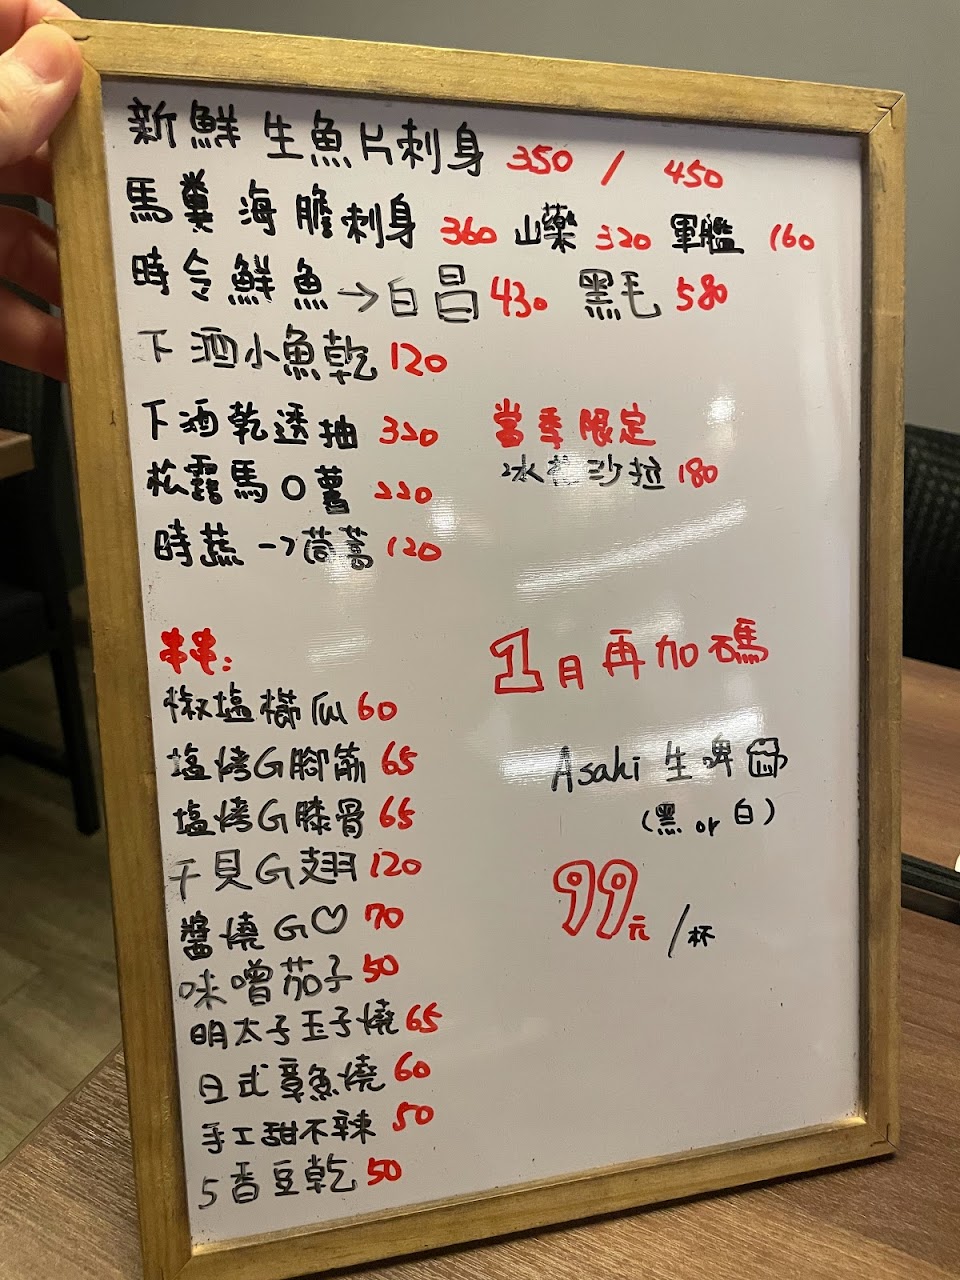 新鮮 生魚片刺身 350 / 450
馬糞海膽刺身 360 山藥 320 軍艦 160
時令鮮魚→白昌 430 黑毛 580
下酒小魚乾 120
下酒乾透抽 320
松露馬O薯 220
時蔬→茼蒿 120
當季限定
冰花沙拉 180
串串:
椒塩櫛瓜 60
塩烤G腳筋 65
塩烤G膝骨 65
干貝G翅 120
醬燒G♡ 70
味噌茄子 50
明太子玉子燒 65
日式章魚燒 60
手工甜不辣 50
5香豆乾 50
1月再加碼
Asahi 生啤
(黑 or 白)
99元 /杯